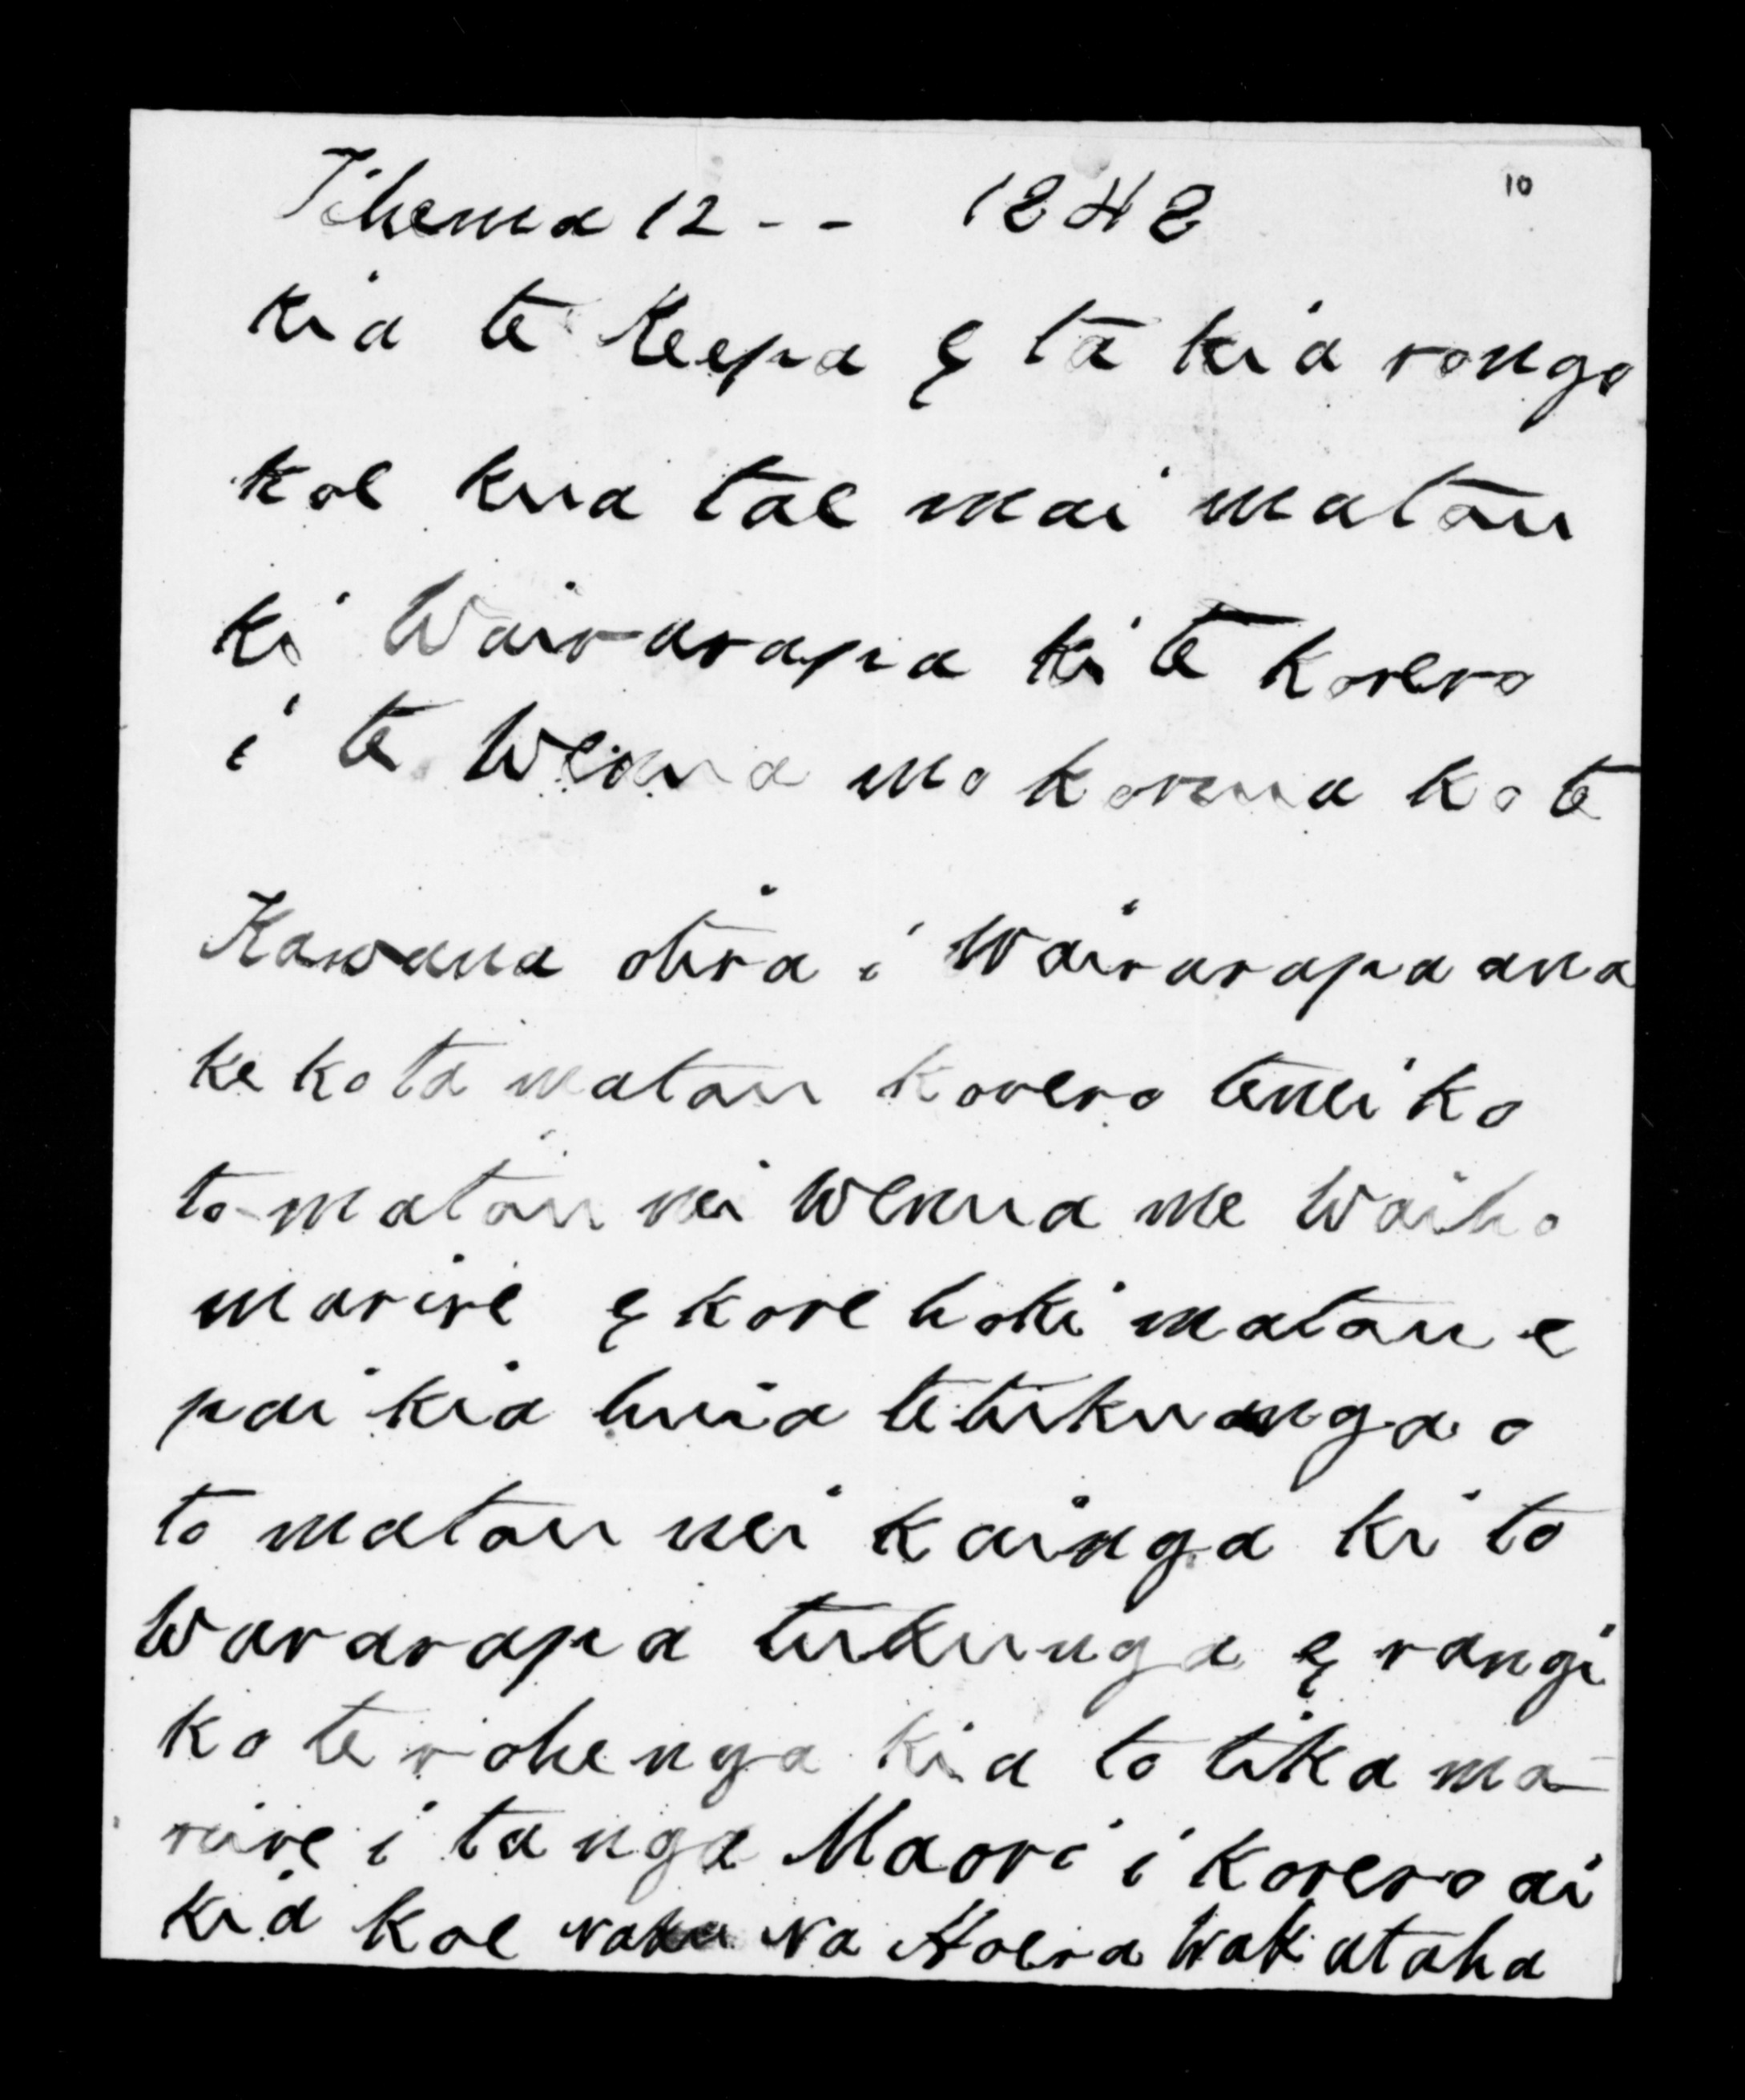 Tihema 12 - - 1848
10
Kia te Keepa E ta kia rongo
koe kua tae mai matou
ki Wairarapa ki te korero
i te Wenua mo korua ko te
Kawana otira i Wairarapa ana
ke ko ta matou korero tenei ko
to matou nei Wenua me Waiho
marire E kore hoki matou e
pai kia huia te tukuanga o
to matou nei kainga ki to
Wararapa tukunga E rangi
ko te rohenga kia to tika ma-
rire i ta nga Maori i korero ai
kia koe naku Na Hoera Wakataha